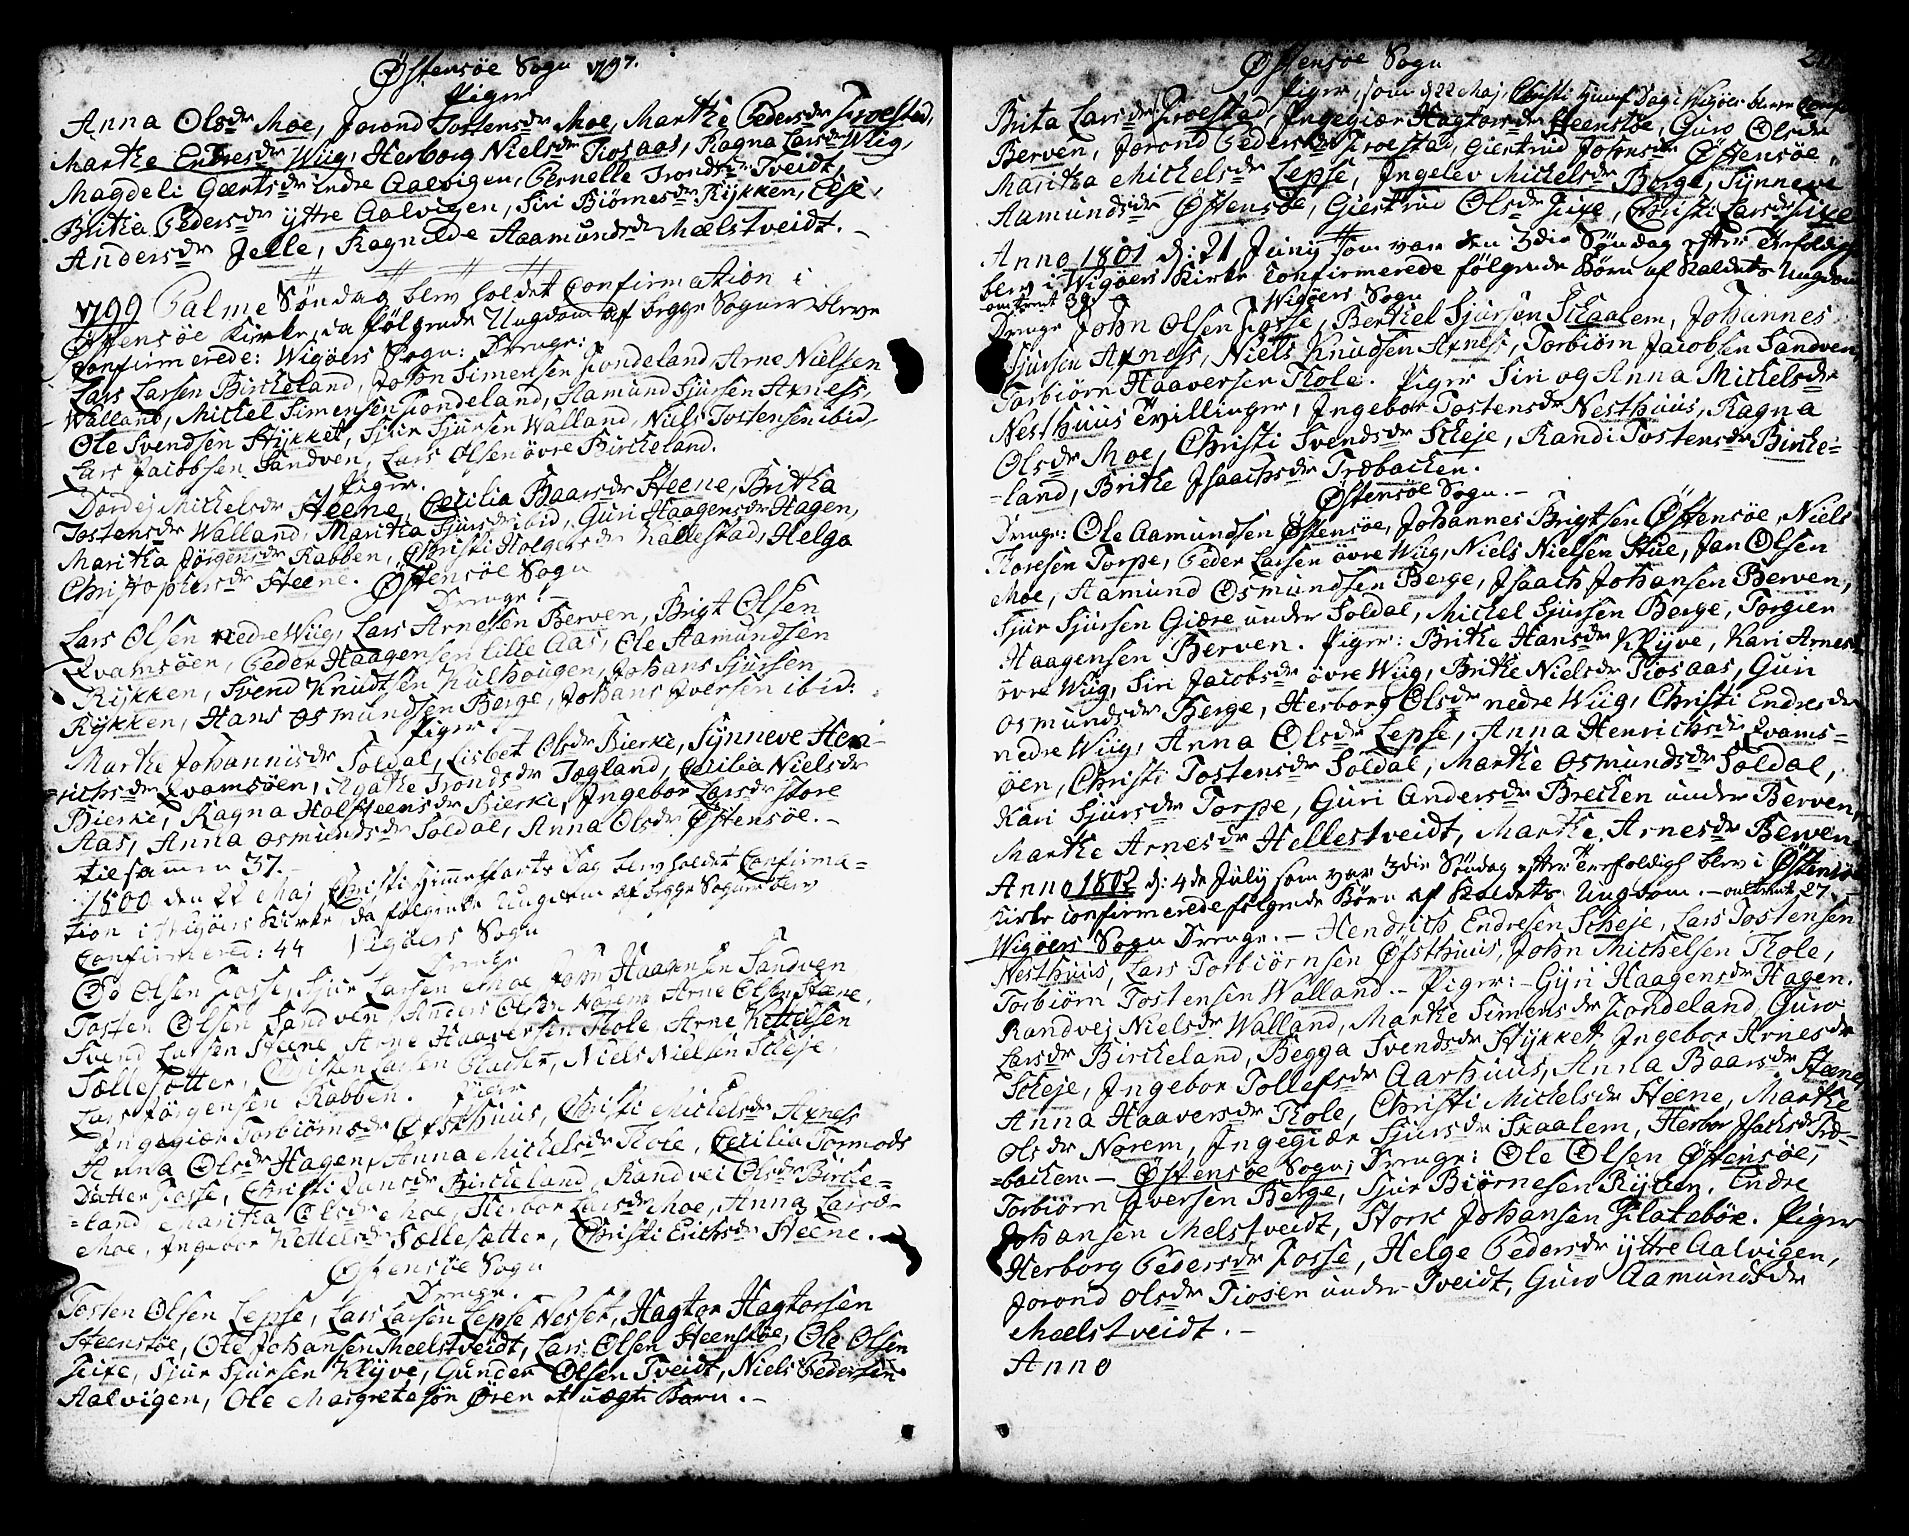 Østensøe Sogn 1797.
Piger
Anna Olsdr Moe, Jorond Tostensdr Moe, Marthe Pedersdr Froestad,
Marthe Endresdr Wiig, Herborg Nielsdr Tiosaas, Ragna Larsdr Wiig,
Magdeli Gærtsdr indre Aalvigen, Pernelle Trondsdr Tveidt,
Britha Pedersdr yttre Aalvigen, Siri Biørnesdr Rykken, Else
Andersdr Jelle, Ragnilde Aamundsdr Mælstveidt. -
1799 Palme Søndag blev holdet Confirmation i
Østensøe Kirke, da følgende Ungdom af begge Sogner bleve
Confirmerede: Wigøers Sogn: Drenge:
Lars Larsen Birckeland, John Simensen Fondeland, Arne Nielsen
Walland, Mickel Simensen Fondeland, Aamund Sjursen Axness,
Ole Svendsen Stykket, Sjur Sjursen Walland, Niels Tostensen ibid,
Lars Jacobsen Sandven, Lars Olsen øvre Birckeland.
Piger.
Dordej Mickelsdr Steene, Cecilia Baarsdr Steene, Britha
Tostensdr Walland, Maritha Sjursdr ibid, Guri Haagensdr Hagen,
Maritha Jørgensdr Rabben, Christi Holgersdr Nallestad, Helga
Christophersdr Steene. Østensøe Sogn
Drenge: -
Lars Olsen nedre Wiig, Lars Arnesen Berven, Brigt Olsen
Qvamsøen, Peder Haagensen lille Aas, Ole Aamundsen
Rykken, Svend Knudtsen Kulhougen, Johans Sjursen
Rykken, Hans Osmundsen Berge, Johans Iversen ibid:
Piger.
Marthe Johannisdr Soldal, Lisbet Olsdr Bierke, Synneve Hen-
richsdr Qvamsøen, Agathe Trondsdr Togland, Cecilia Nielsdr
Bierke, Ragna Halfsteensdr Bierke, Ingebor Larsdr store
Aas, Anna Osmundsdr Soldal, Anna Olsdr Østensøe. -
tilsammen 37. -
1800 den 22 Maj Christi Himmelfarts Dag blev holdet Confirma-
tion i Wigøers Kirke da følgende Ungdom af begge Sogner blev
Confirmered: 44 Vigøers Sogn
Drenge
Olsen Fosse, Sjur Larsen Moe, John Haagensen Sandven
Tosten Olsen Sandven, Anders Olsen Norem, Arne Olsen Steene,
Svend Larsen Steene, Arne Haaversen Thole, Arne Kettelsen
Sællesætter, Larsen, Niels Nielsen Scheje,
Lars Jørgensen Rabben. Piger
Ingegiær Torbiørnsdr Øfsthuus, Christi Mickelsdr Axness
Anna Olsdr Hagen, Anna Mickelsdr Thole, Cecilia Tormods
Datter Fosse, Christi Jansdr Birckeland, Randvei Olsdr Birke-
land, Maritha Olsdr Moe, Herbor Larsdr Moe, Anna Larsdr
Moe, Ingebor Kettelsdr Sællesætter, Christi Erichsdr Steene. -
Østensøe Sogn
Drenge. -
Tosten Olsen Lepse, Lars Larsen Lepse Nesset, Hagtor Hagtorsen
Steenstøe, Ole Johansen Mælstveidt, Lars Olsen Steenstøe, Ole Olsen
Fixe, Sjur Sjursen Klyve, Gunder Olsen Tveidt, Niels Pedersen
Aalvigen, Ole Margretesøn Øren et uægte Barn. -
Østensøe Sogn
Piger, som d 22 Maj, Christi Himf Dag i Wigøer bleve
Brita Larsdr Froestad, Ingegiær Hagtorsdr Steenstøe, Guro Olsdr
Berven, Jorond Pedersdr Froestad, Giertrud Johnsdr Østensøe,
Maritha Mickelsdr Lepse, Ingelev Mickelsdr Berge, Synneve
Aamundsdr Østensøe, Giertrud Olsdr Fixe, Christi Larsdr Fixe
Anno 1801 d: 21 Juny som var den 3die Søndag efter Trefoldigh
blev i Wigøers Kirke Confirmerede følgende Børn af Kaldets Ungdom
omtrent 39. Wigøers Sogn
Drenge John Olsen Fosse, Berthel Sjursen Skaalem, Johannes
Sjursen Axness, Niels Knudsen Axness, Torbiørn Jacobsen Sandven,
Torbiørn Haaversen Thole. Piger Siri og Anna Mickelsdr
Nesthuus Tvillinger, Ingebor Tostensdr Nesthuus, Ragna
Olsdr Moe, Christi Svendsdr Scheje, Randi Tostensdr Birke-
land, Brithe Isaachsdr Træbacken.
Østensøe Sogn. -
Drenge: Ole Aamundsen Østensøe, Johannes Brigtsen Østensøe, Niels
Thoresen Torpe, Peder Larsen øvre Wiig, Niels Nielsen Hue, Jan Olsen
Moe, Aamund Osmundsen Berge, Isaach Johansen Berven,
Sjur Sjursen Giære under Soldal, Mickel Sjursen Berge, Torgier
Haagensen Berven. Piger: Brithe Hansdr Klyve, Kari Arnesdr
øvre Wiig, Siri Jacobsdr øvre Wiig, Brithe Nielsdr Tiosaas, Guri
Osmundsdr Berge, Herborg Olsdr nedre Wiig, Christi Endresdr
nedre Wiig, Anna Olsdr Lepse, Anna Henrichsdr Qvams-
øen, Christi Tostensdr Soldal, Marthe Osmundsdr Soldal,
Kari Sjursdr Torpe, Guri Andersdr Brecken under Berven,
Marthe Arnesdr Hellestveidt, Marthe Arnesdr Berven
Anno 1802 d: 4de July som var 3die Søndag efter Trefoldigh blev i Østensøe
Kirke Confirmerede følgende Børn af Kaldets Ungdom. - omtrent 27. -
Wigøers Sogn Drenge. - Hendrich Endresen Scheje, Lars Tostensen
Nesthuus, Lars Torbiørnsen Øfsthuus, John Michelsen Thole,
Torbiørn Tostensen Walland. - Piger: - Gyri Haagensdr Hagen.
Randvej Nielsdr Walland, Marthe Simensdr Fondeland, Guro
Larsdr Birckeland, Begga Svendsdr Stykket, Ingebor Arnesdr
Scheje, Ingebor Tollefsdr Aarhuus, Anna Baarsdr Steene,
Anna Haaversdr Thole, Christi Mickelsdr Steene, Marthe
Olsdr Norem, Ingegiær Sjursdr Skaalem, Herbor Isachsdr Træ-
backen. - Østensøe Sogn; Drenge: Ole Olsen Østensøe,
Torbiørn Iversen Berge, Sjur Biørnesen Rykken, Endre
Johansen Melstveidt, Stork Johansen Flatebøe. Piger
Herborg Pedersdr Fosse, Helge Pedersdr yttre Aalvigen,
Jorond Olsdr Tiosen under Tveidt, Guro Aamundsdr
Mælstveidt. -
Anno